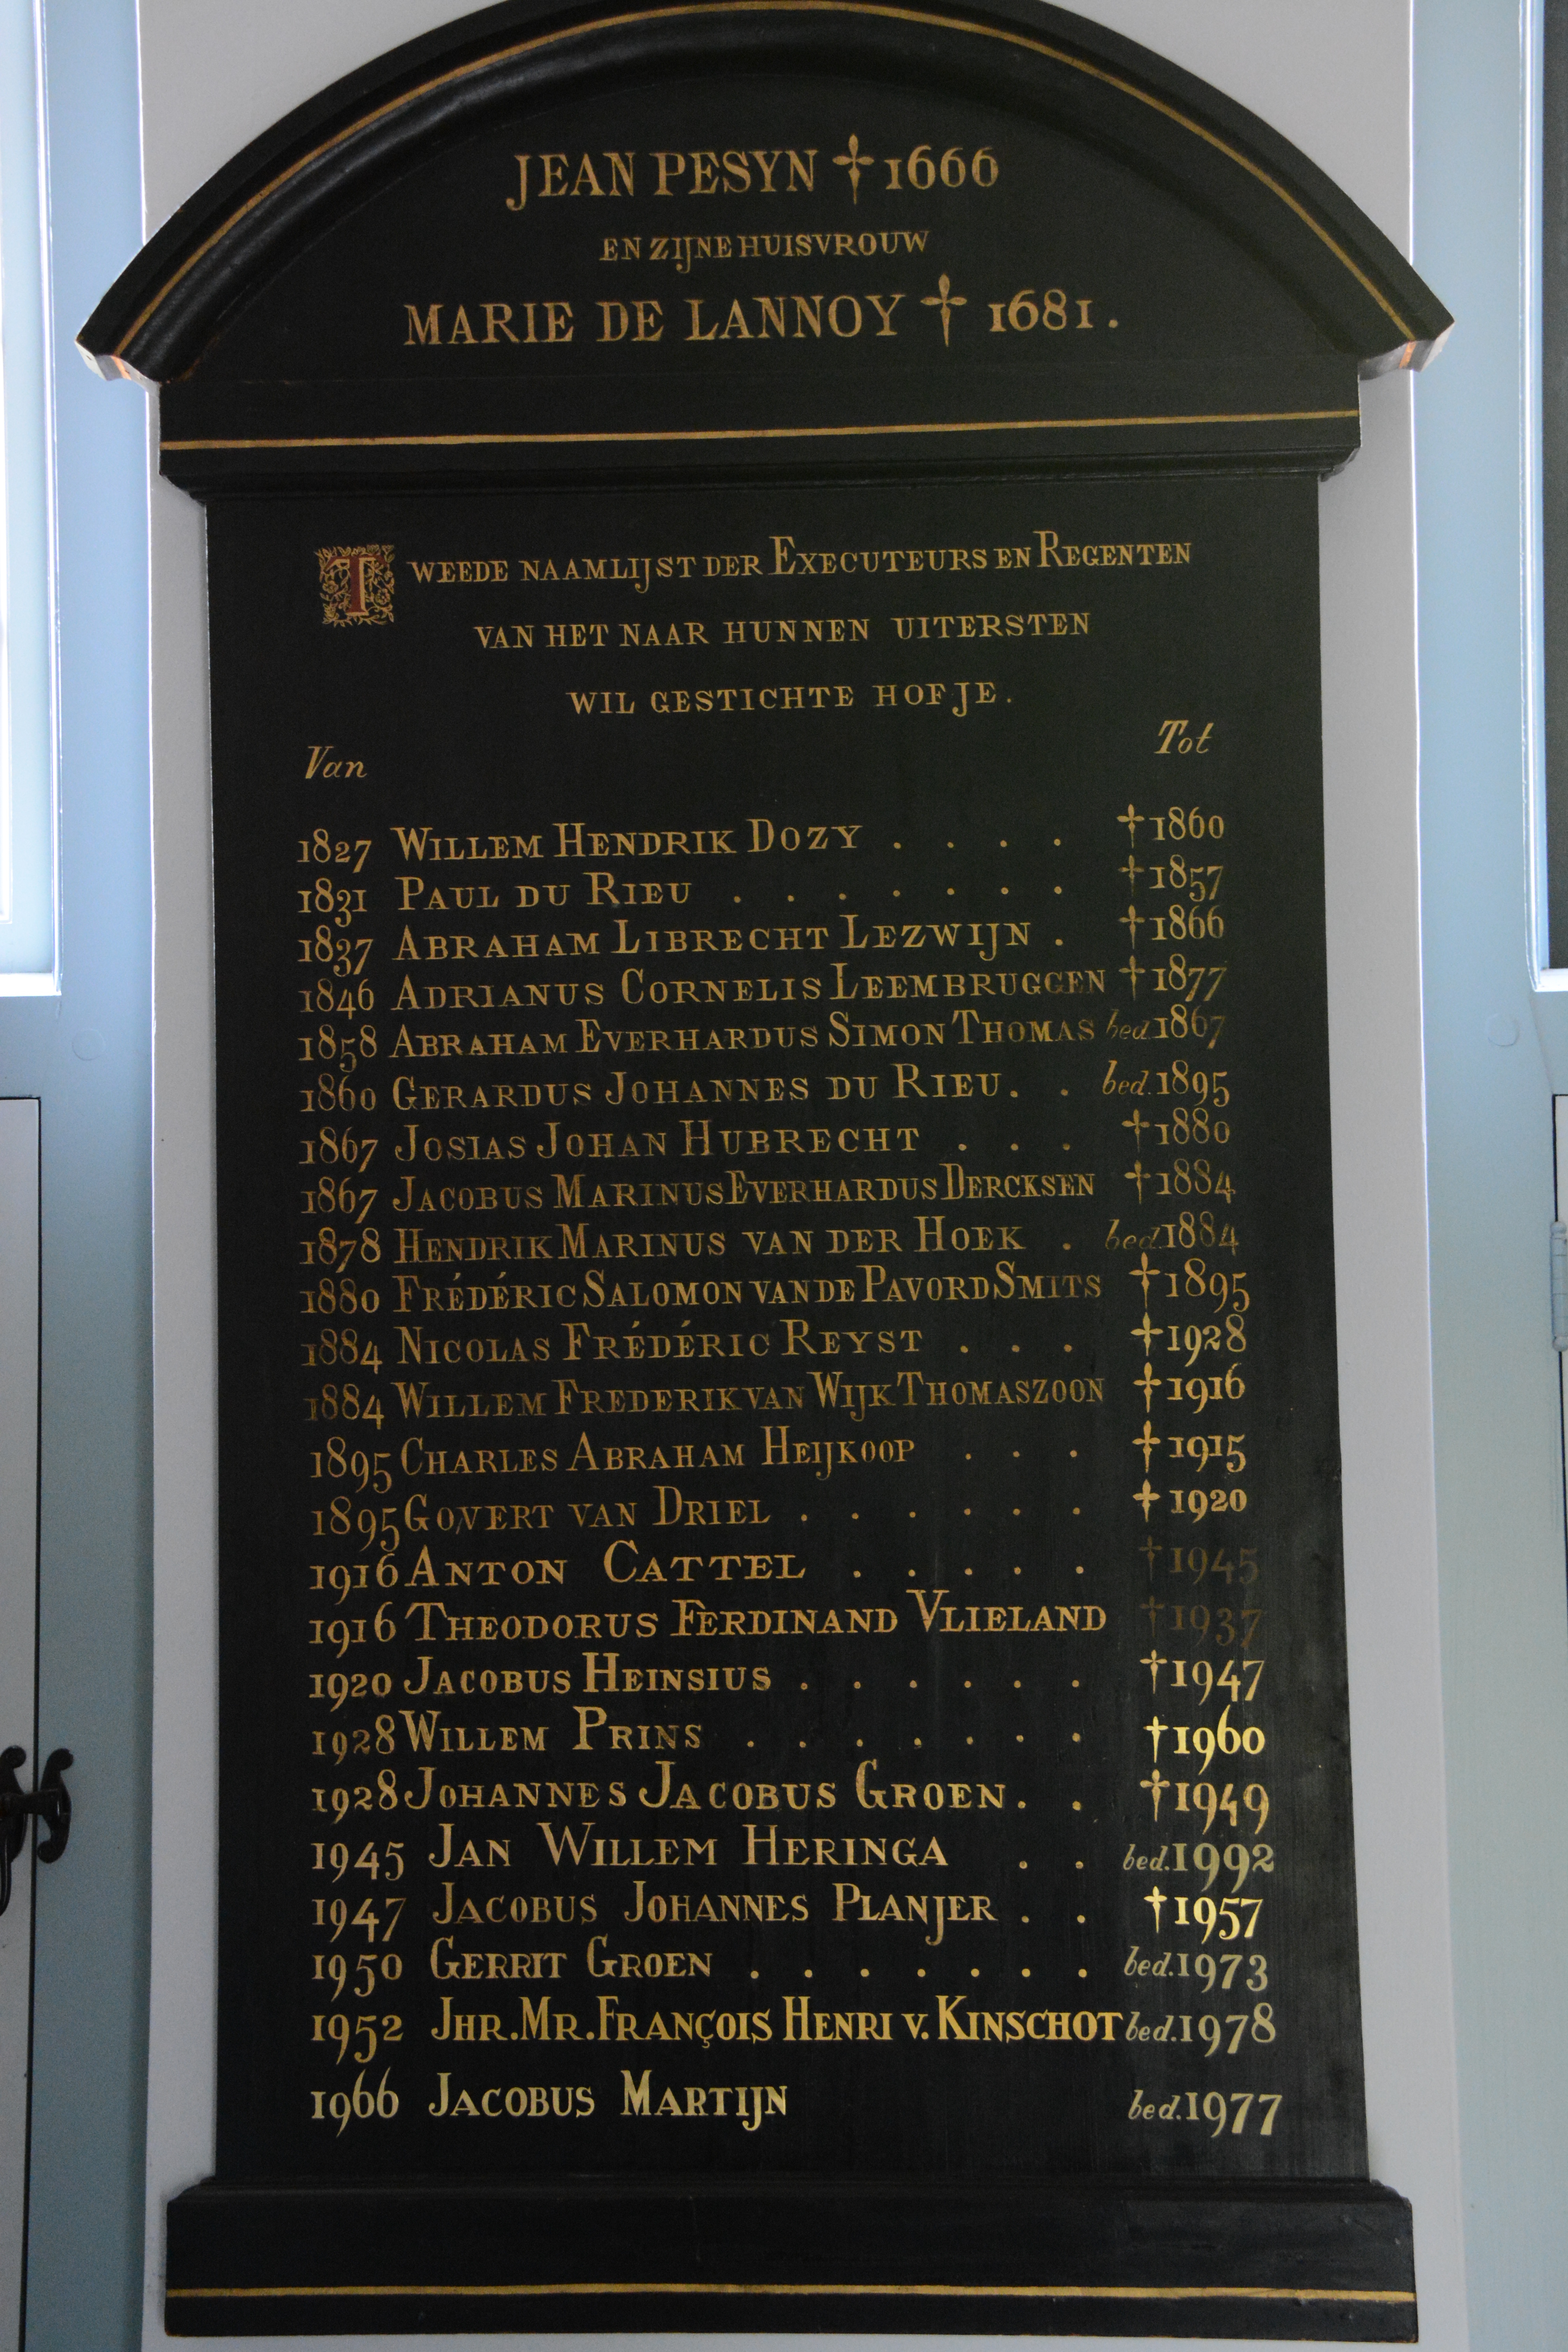 JEAN PESYN † 1666
EN ZIJNE HUISVROUW
MARIE DE LANNOY † 1681.
TWEEDE NAAMLIJST DER EXECUTEURS EN REGENTEN
VAN HET NAAR HUNNEN UITERSTEN
WIL GESTICHTE HOFJE.
Van Tot
1827 WILLEM HENDRIK DOZY . . . . †1860
1831 PAUL DU RIEU . . . . . . . †1857
1837 ABRAHAM LIBRECHT LEZWIJN . †1866
1846 ADRIANUS CORNELIS LEEMBRUGGEN †1877
1858 ABRAHAM EVERHARDUS SIMON THOMAS bed.1867
1860 GERARDUS JOHANNES DU RIEU . . bed.1895
1867 JOSIAS JOHAN HUBRECHT . . . †1880
1867 JACOBUS MARINUS EVERHARDUS DERCKSEN †1884
1878 HENDRIK MARINUS VAN DER HOEK . bed.1884
1880 FRÉDÉRIC SALOMON VAN DE PAVORD SMITS †1895
1884 NICOLAS FRÉDÉRIC REYST . . . †1928
1884 WILLEM FREDERIK VAN WIJK THOMASZOON †1916
1895 CHARLES ABRAHAM HEIJKOOP . . . †1915
1895 GOVERT VAN DRIEL . . . . . . †1920
1916 ANTON CATTEL . . . . . †1945
1916 THEODORUS FERDINAND VLIELAND †1937
1920 JACOBUS HEINSIUS . . . . . . †1947
1928 WILLEM PRINS . . . . . . . †1960
1928 JOHANNES JACOBUS GROEN . . †1949
1945 JAN WILLEM HERINGA . . bed.1992
1947 JACOBUS JOHANNES PLANJER . . †1957
1950 GERRIT GROEN . . . . . . . bed.1973
1952 JHR.MR.FRANÇOIS HENRI V. KINSCHOT bed.1978
1966 JACOBUS MARTIJN bed.1977